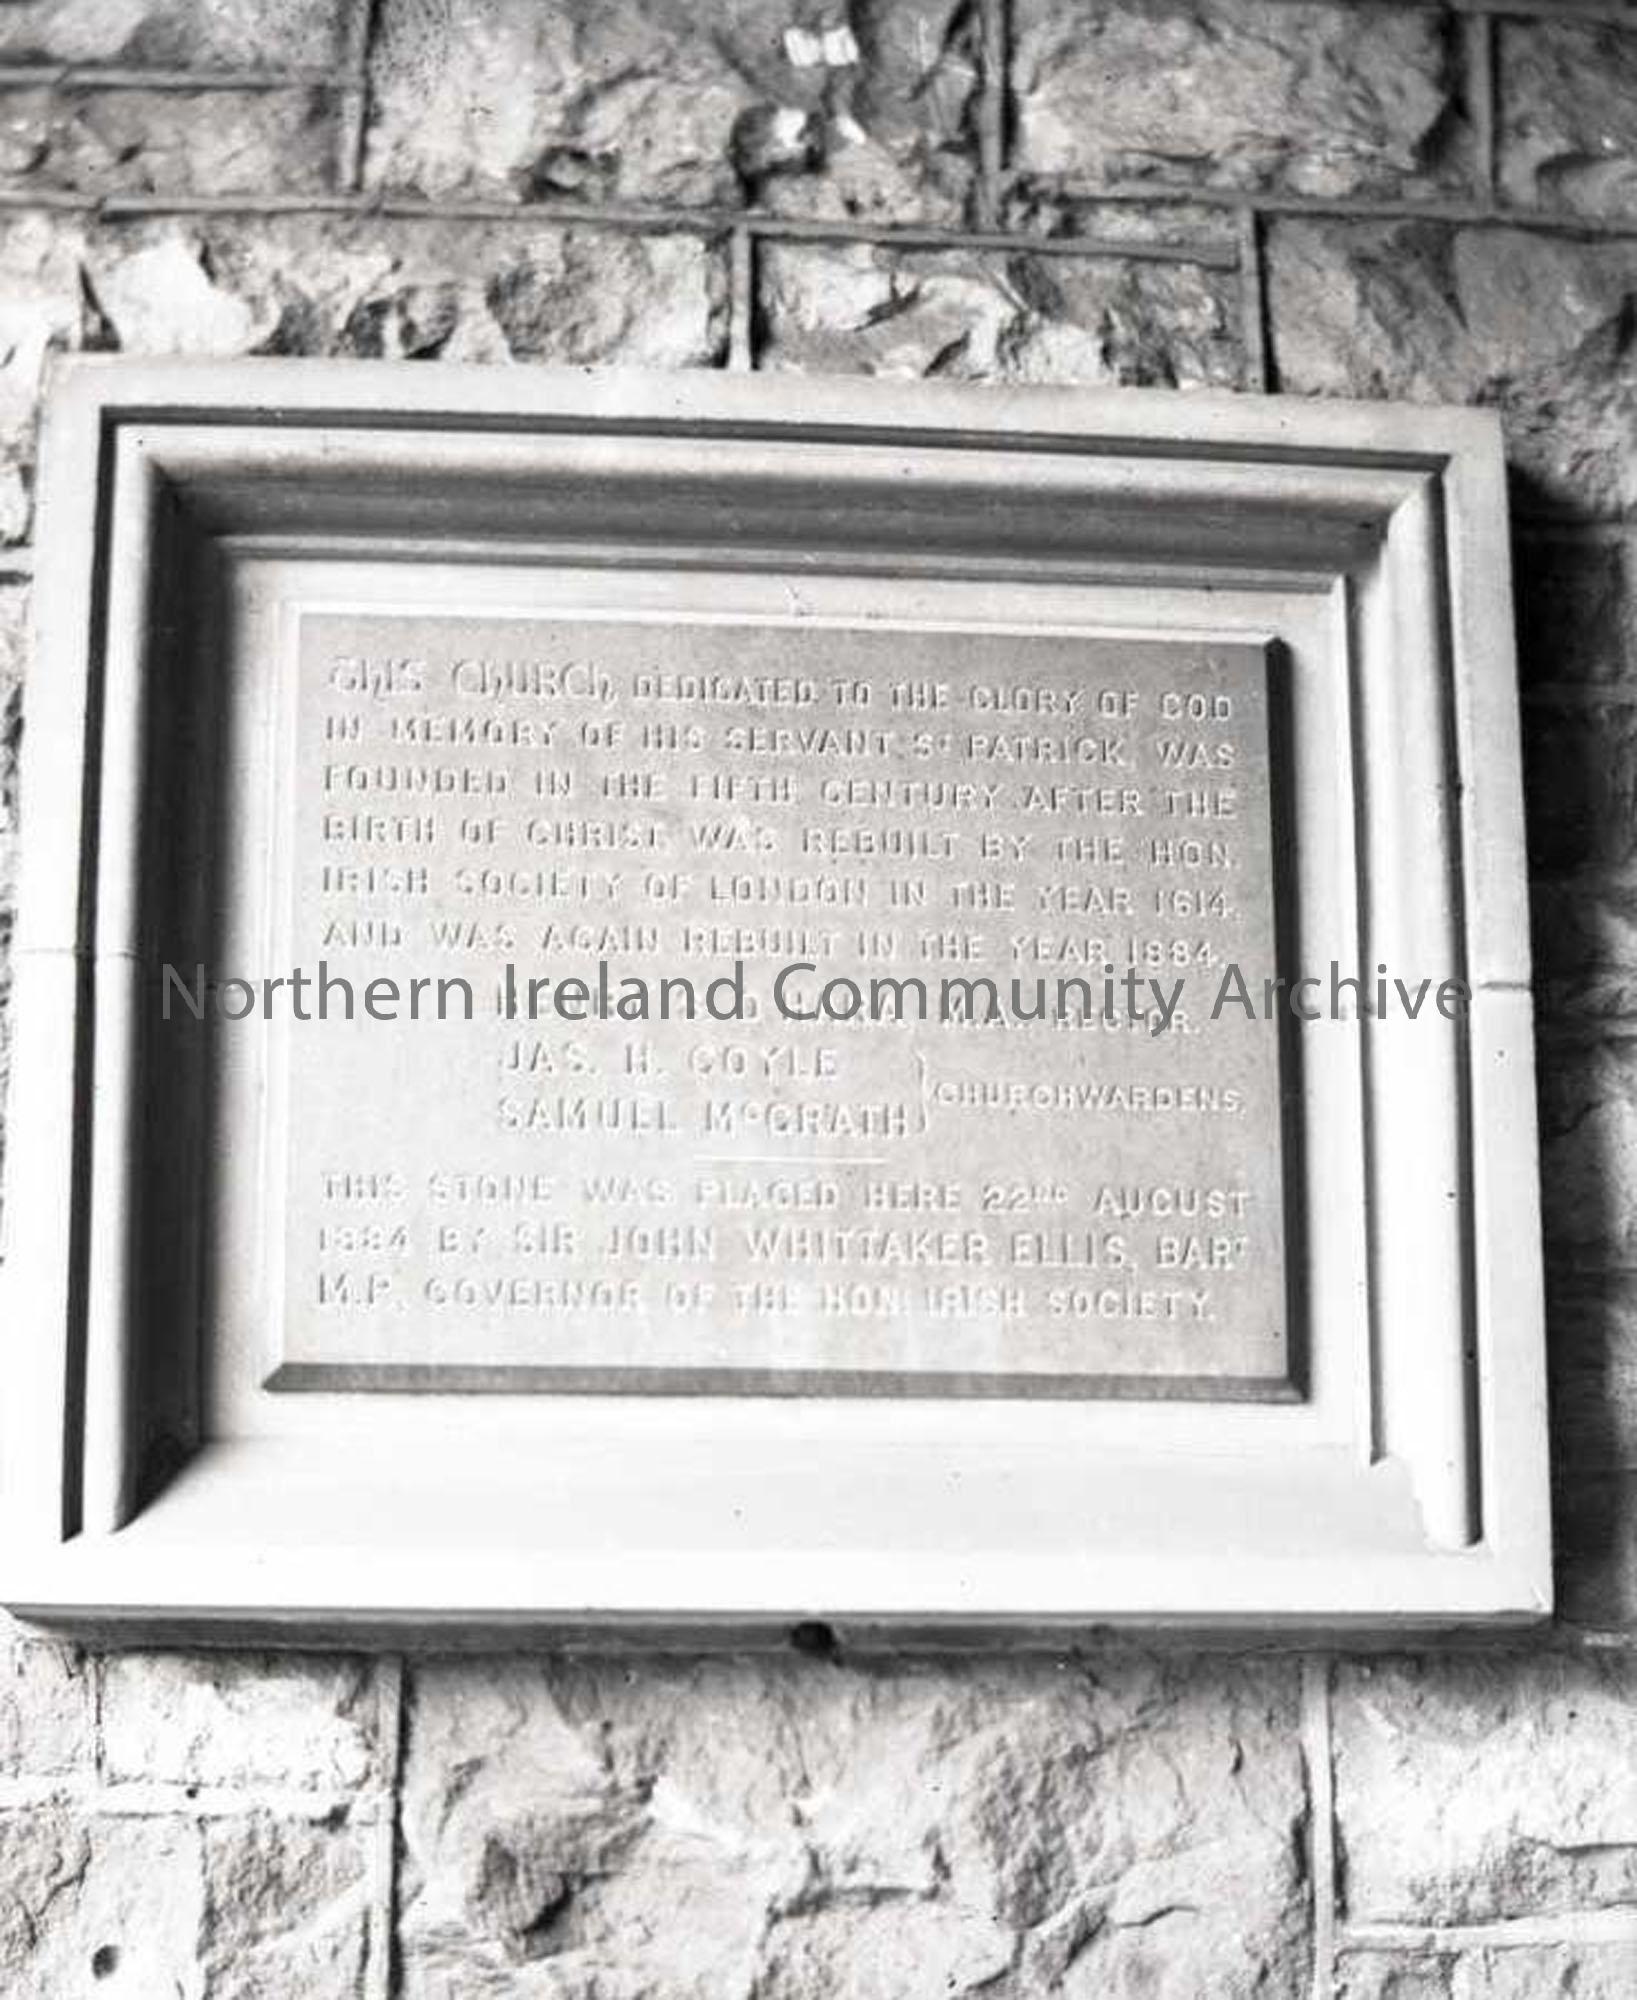 This Church, DEDICATED TO THE GLORY OF GOD
IN MEMORY OF HIS SERVANT, St PATRICK, WAS
FOUNDED IN THE FIFTH CENTURY AFTER THE
BIRTH OF CHRIST. WAS REBUILT BY THE HON.
IRISH SOCIETY OF LONDON IN THE YEAR 1614.
AND WAS AGAIN REBUILT IN THE YEAR 1884.
Northern Ireland Community Archive
M.A. RECTOR.
JAS. H. COYLE
SAMUEL McGRATH } CHURCHWARDENS.
THIS STONE WAS PLACED HERE 22ND AUGUST
1884 BY SIR JOHN WHITTAKER ELLIS, BART
M.P. GOVERNOR OF THE HON. IRISH SOCIETY.